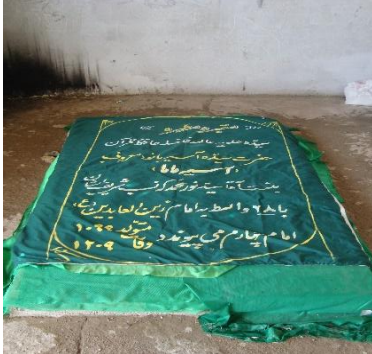 سیده علویه عالمه فاضله حافظ قرآن
حضرت سیده آسیه بانو معروف
(آسیه ماما)
بنت آقا سید نور محمد
با ۱۸ واسطه به امام زین العابدین (ع)
امام چهارم می پیوندد
متولد ۱۰۶۶
وفات ۱۲۰۹